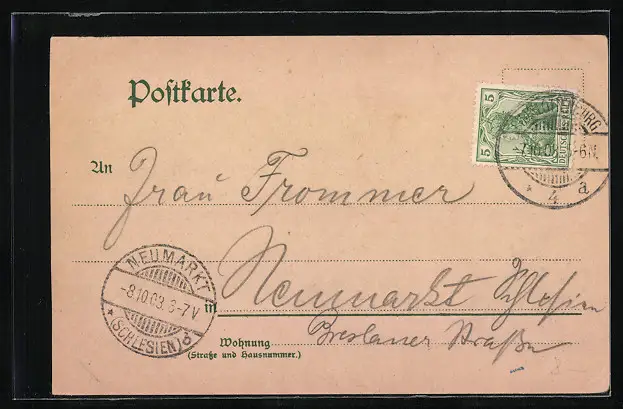 Postkarte.
5
5
DEUTSCHES REICH
BURG
7.10.03 -6N.
* 4 a
An Frau Frommer
NEUMARKT
-8.10.03. 6-7V
* (SCHLESIEN) d
in Neumarkt Schlesien
Wohnung Breslauer Straße
(Straße und Hausnummer.)